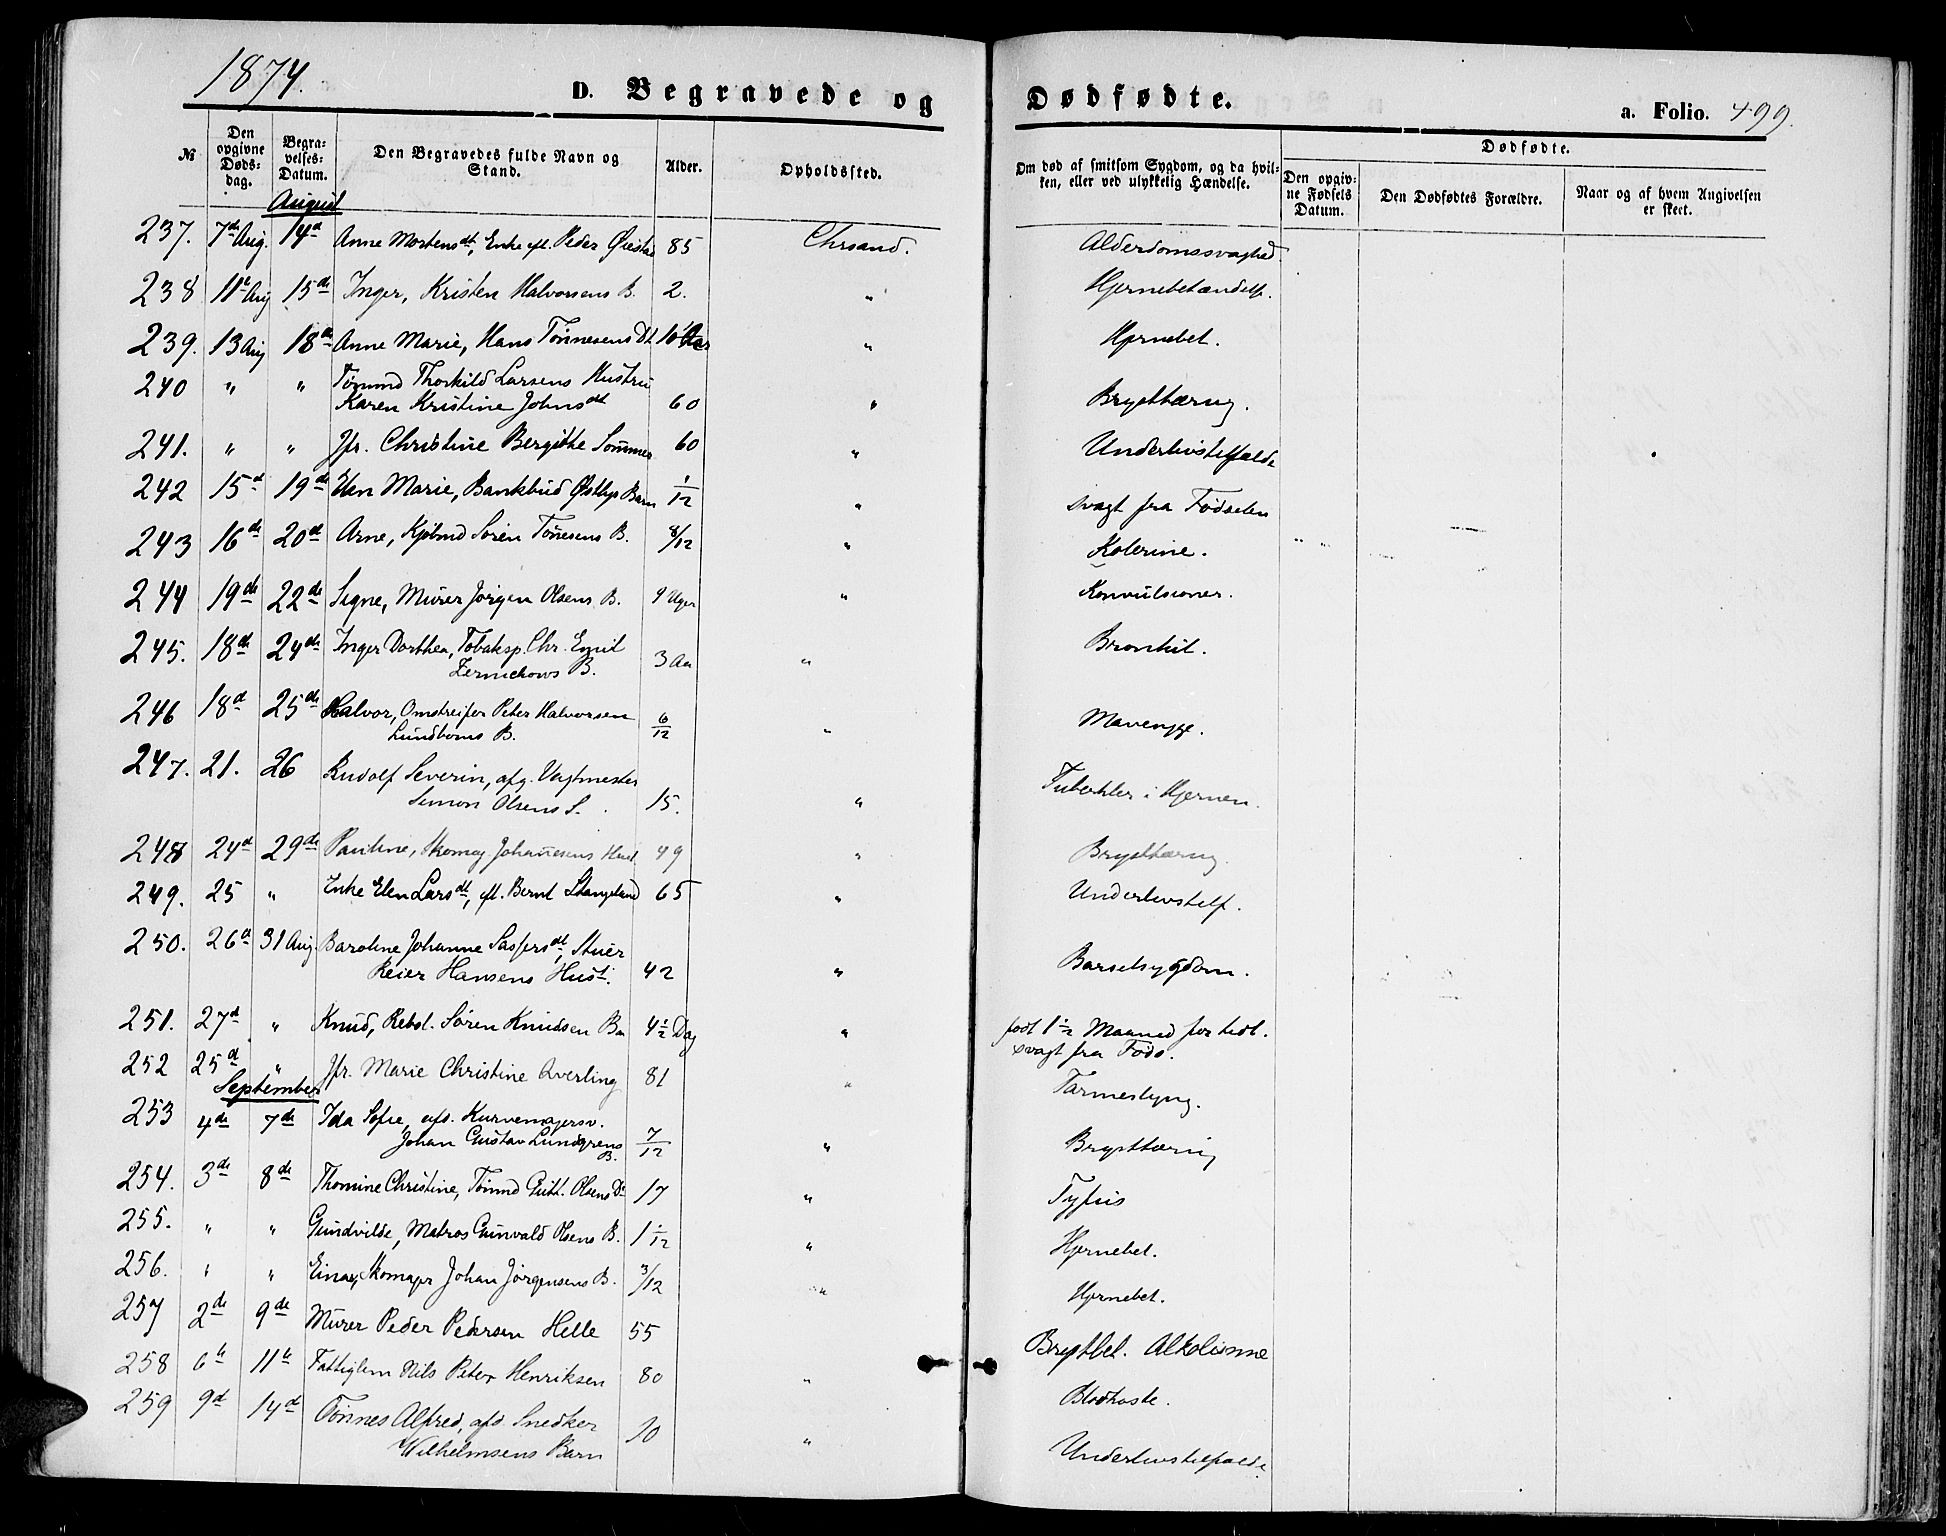 1874.
D. Begravede og Dødfødte.
a. Folio. 499.
№
Den opgivne Døds-dag.
Begra-velses-Datum.
Den Begravedes fulde Navn og Stand.
Alder.
Opholdssted.
Om død af smitsom Sygdom, og da hvil-ken, eller ved ulykkelig Hændelse.
Dødfødte.
Den opgiv-ne Fødsels Datum.
Den Dødfødtes Forældre.
Naar og af hvem Angivelsen er skeet.
August
237. 7de Aug. 14d Anne Mortensdt, Enke eft. Peder 85 Chrsand. Alderdomssvaghed
238 11te Aug 15de Inger, Kristen Halvorsens B. 2. " Hjernebetændelse.
239. 13 Aug 18de Anne Marie, Hans Tønnesens Dt " Hjernebet.
240 " " Tømmd Thorkild Larsens Hustru
Karen Kristine Johnsdt 60 " Brysttæring.
241. " " Jfr. Christine Bergitte Sommer 60 " Underlivstilfælde
242 15d 19de Elen Marie, Bankbud Østbys Barn 1/12 " svagt fra Fødselen
243 16de 20d Arne, Kjøbmd Søren Tønesens B. 8/12 " Kolerine.
244 19de 22de Signe, Murer Jørgen Olsens B. 9 Uger " Konvulsioner.
245. 18de 24de Inger Dorthea, Tobaksp. Chr. Emil
Zernichows B. 3 Aa " Bronkit.
246 18d 25de Halvor, Omstreifer Peter Halvorsen
Lundboms B. 6/12 " Mavesyge.
247. 21. 26 Rudolf Severin, afg. Vagtmester
Simon Olsens S. 15. " Tuberkler i Hjernen.
248 24d 29de Pauline, Skomag Johanesens Hust 49 " Brysttæring.
249. 25 " Enke Elen Larsdt, eft. Bernt Stangeland 65 " Underlivstilf.
250. 26d 31 Aug. Baroline Johanne Saspersdt, Stuer
Reier Hansens Hust. 42 " Barselsygdom.
251. 27d " Knud, Rebsl. Søren Knudsen Ba 4½ Dag " født 1½ Maaned for tidl.
svagt fra Føds.
252 25d " Jfr. Marie Christine Qverling 81 " Tarmeslyng.
September
253 4de 7de Ida Sofie, afd. Kurvemagersv.
Johan Gustav Lundgrens
B. 7/12 " Brysttæring
254. 3de 8de Thomine Christine, Tømmd Gutt. Olsens D. 17 " Tyfus
255. " " Gundvilde, Matros Gunvald Olsens B. 1 1/12 " Hjernebet.
256. " " Einar, Skomager Johan Jørgensens B. 3/12 " Hjernebet.
257 2de 9de Murer Peder Pedersen Helle 55 Brystbet. Alkolisme
258 6te 11te Fattiglem Nils Peter Henriksen 80 " Blodhoste.
259 9d 14d Tønnes Alfred, afd. Snedker
Wilhelmsens Barn 10 " Underlivstilfælde.